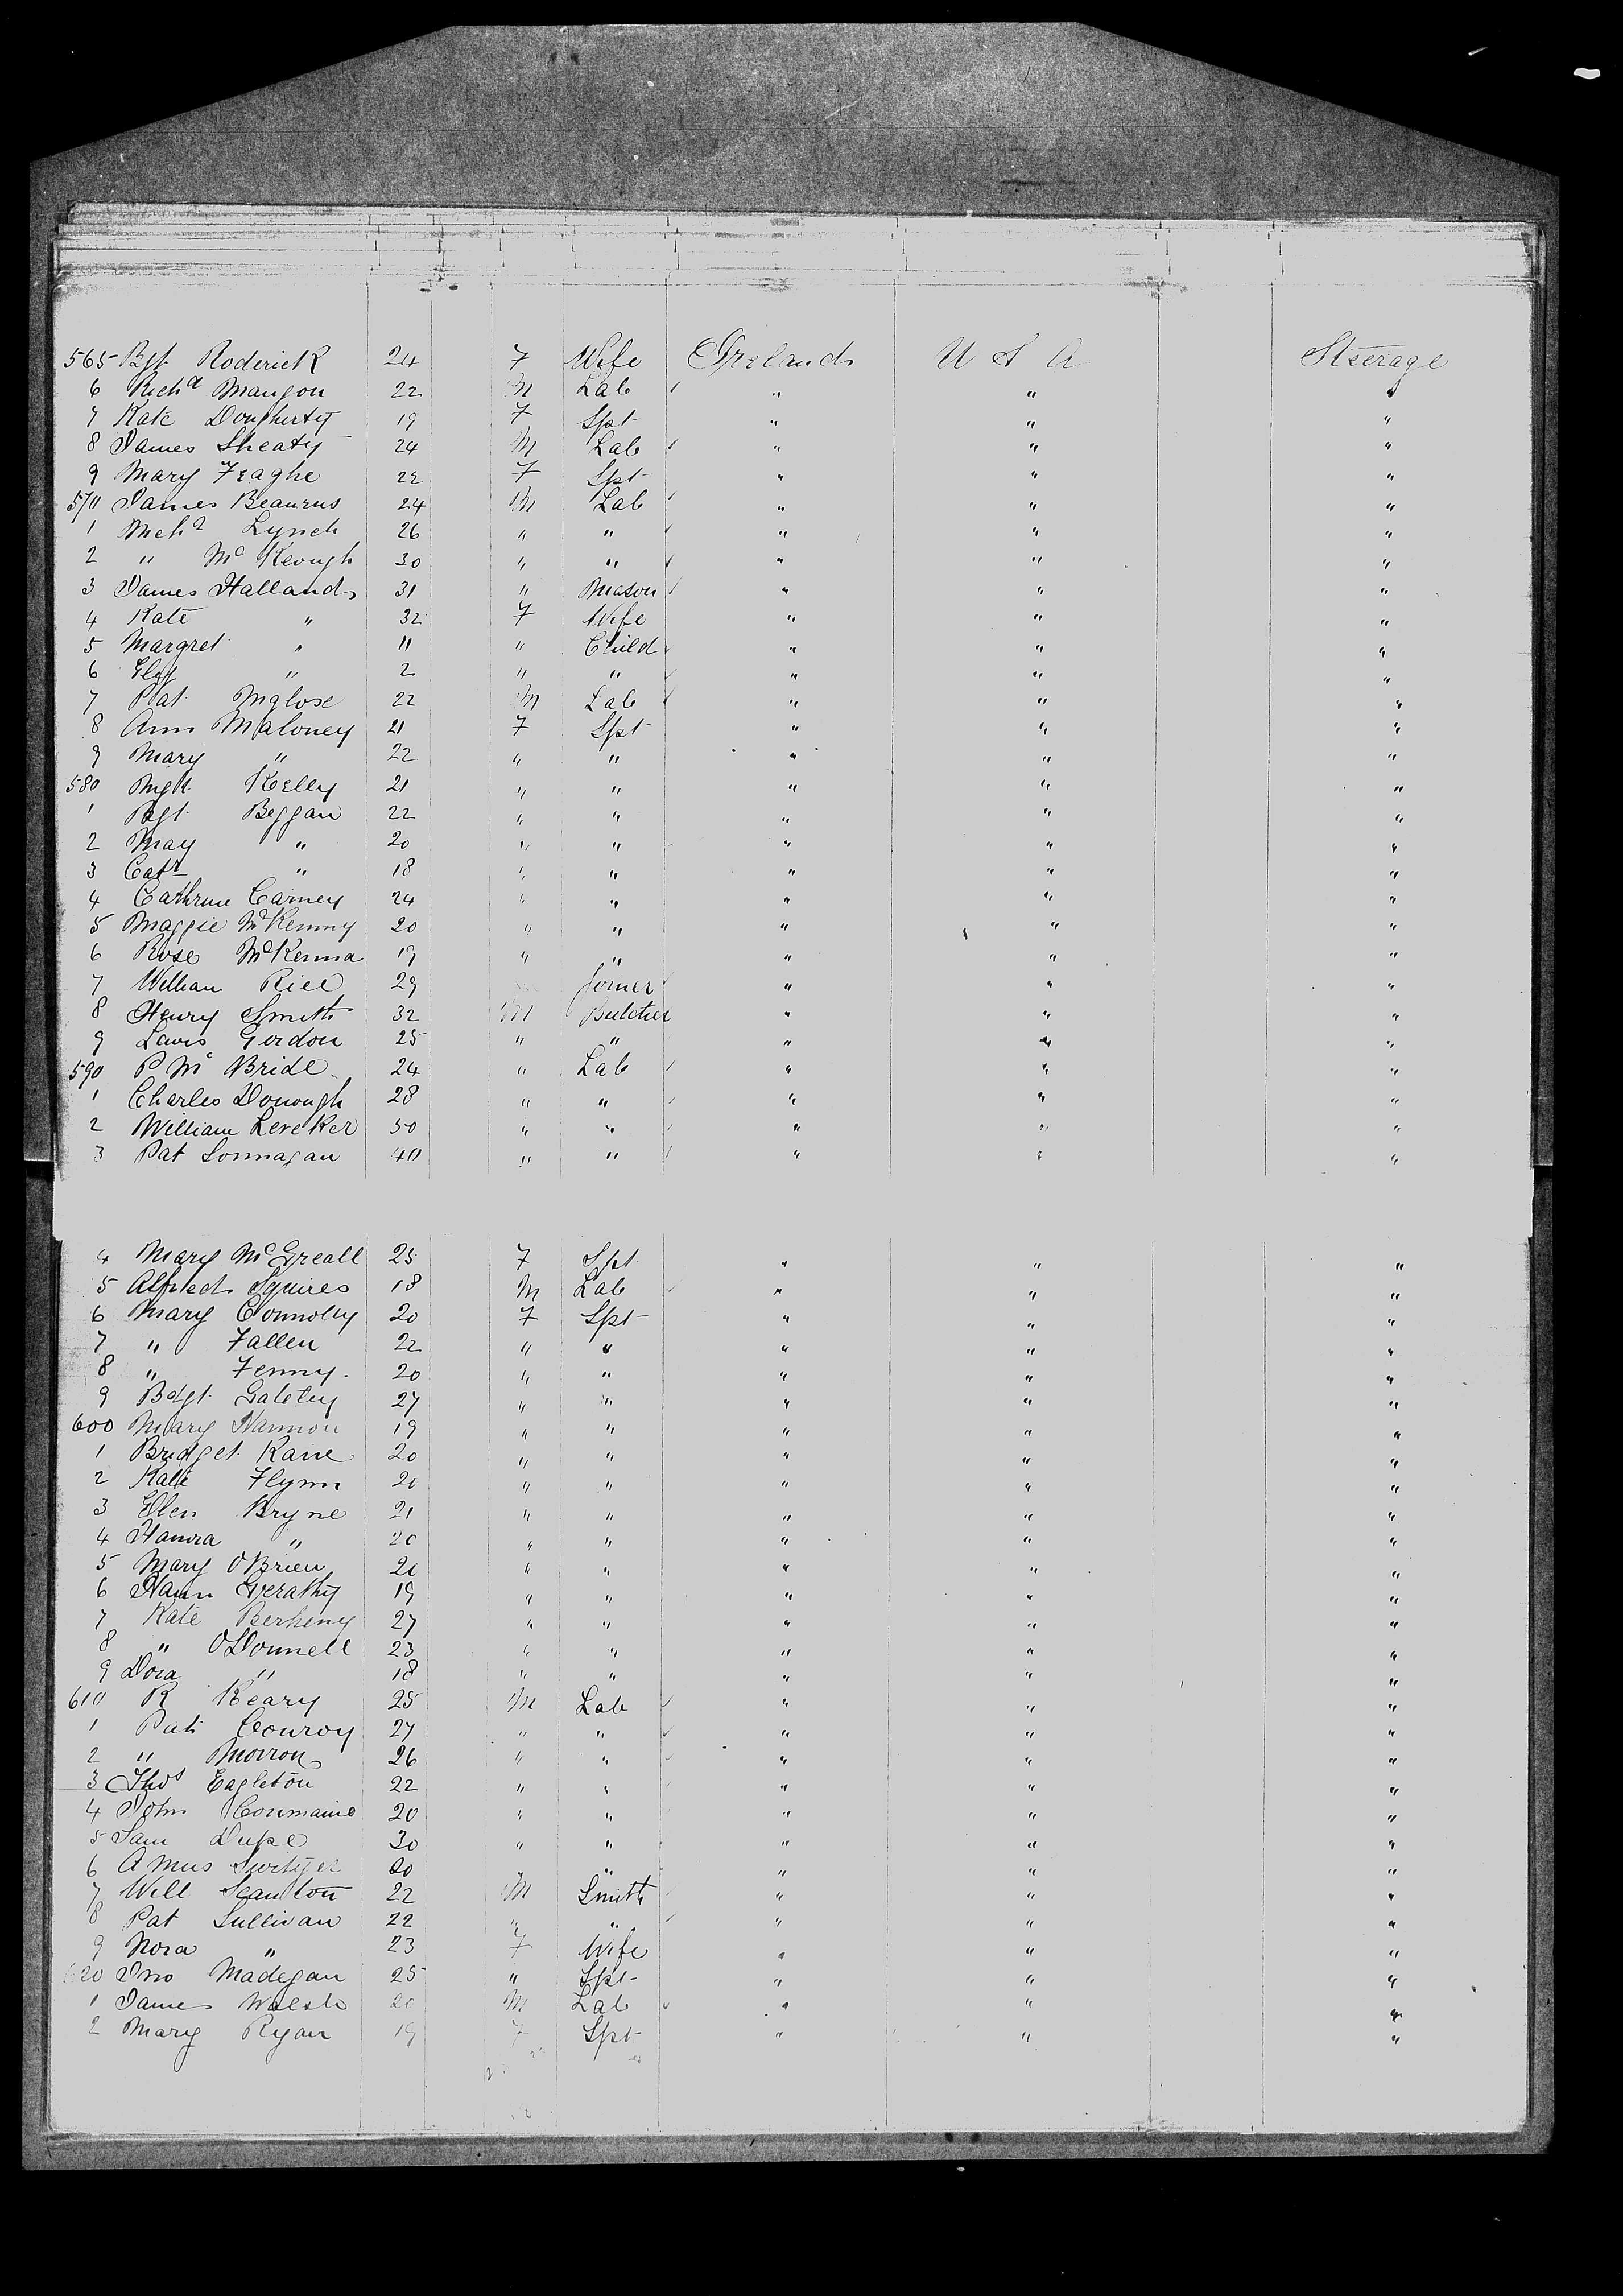 565 Bgt. Roderick 24 F Wife Ireland U S A Steerage
6 Richd Mangon 22 M Lab " " "
7 Kate Dougherty 19 F Spt " " "
8 James Sheaty 24 M Lab " " "
9 Mary Feaghe 22 F Spt " " "
570 James Beaurus 24 M Lab " " "
1 Mchl Lynch 26 " " " " "
2 " Mc Keough 30 " " " " "
3 James Halland 31 " Mason " " "
4 Kate " 32 F Wife " " "
5 Margret " 11 " Child " " "
6 " 2 " " " " "
7 Pat Mglose 22 M Lab " " "
8 Ann Maloney 21 F Spt " " "
9 Mary " 22 " " " " "
580 Mgt. Kelly 21 " " " " "
1 Bgt. Beggan 22 " " " " "
2 May " 20 " " " " "
3 Cath " 18 " " " " "
4 Cathrine Carney 24 " " " " "
5 Maggie McKenny 20 " " " " "
6 Rose McKenna 19 " " " " "
7 William Rice 29 Joiner " " "
8 Henry Smith 32 M Butcher " " "
9 Lewis Gordon 25 " " " " "
590 P Mc Bride 24 " Lab " " "
1 Charles Donough 28 " " " " "
2 William Lereker 50 " " " " "
3 Pat Lonnagan 40 " " " " "
4 Mary McGreall 25 F Spt " " "
5 Alfred Squires 18 M Lab " " "
6 Mary Connolly 20 F Spt " " "
7 " Fallen 22 " " " " "
8 " Fenny. 20 " " " " "
9 Bdgt. Gateley 27 " " " " "
600 Mary Hannon 19 " " " " "
1 Bridget Kane 20 " " " " "
2 Kate Flynn 20 " " " " "
3 Ellen Bryne 21 " " " " "
4 Hanora " 20 " " " " "
5 Mary OBrien 20 " " " " "
6 Hann Gerathy 19 " " " " "
7 Kate Berheny 27 " " " " "
8 " ODonnell 23 " " " " "
9 Dora " 18 " " " " "
610 R Keary 25 M Lab " " "
1 Pat Conroy 27 " " " " "
2 " Morron 26 " " " " "
3 Thos Eagleton 22 " " " " "
4 John Counmaine 20 " " " " "
5 Sam Duke 30 " " " " "
6 Amus 20 " " " " "
7 Will Scanlon 22 M Smith " " "
8 Pat Sullivan 22 " " " " "
9 Nora " 23 F Wife " " "
620 Jno Madegan 25 " Spt " " "
1 James Walsh 20 M Lab " " "
2 Mary Ryan 19 F Spt " " "